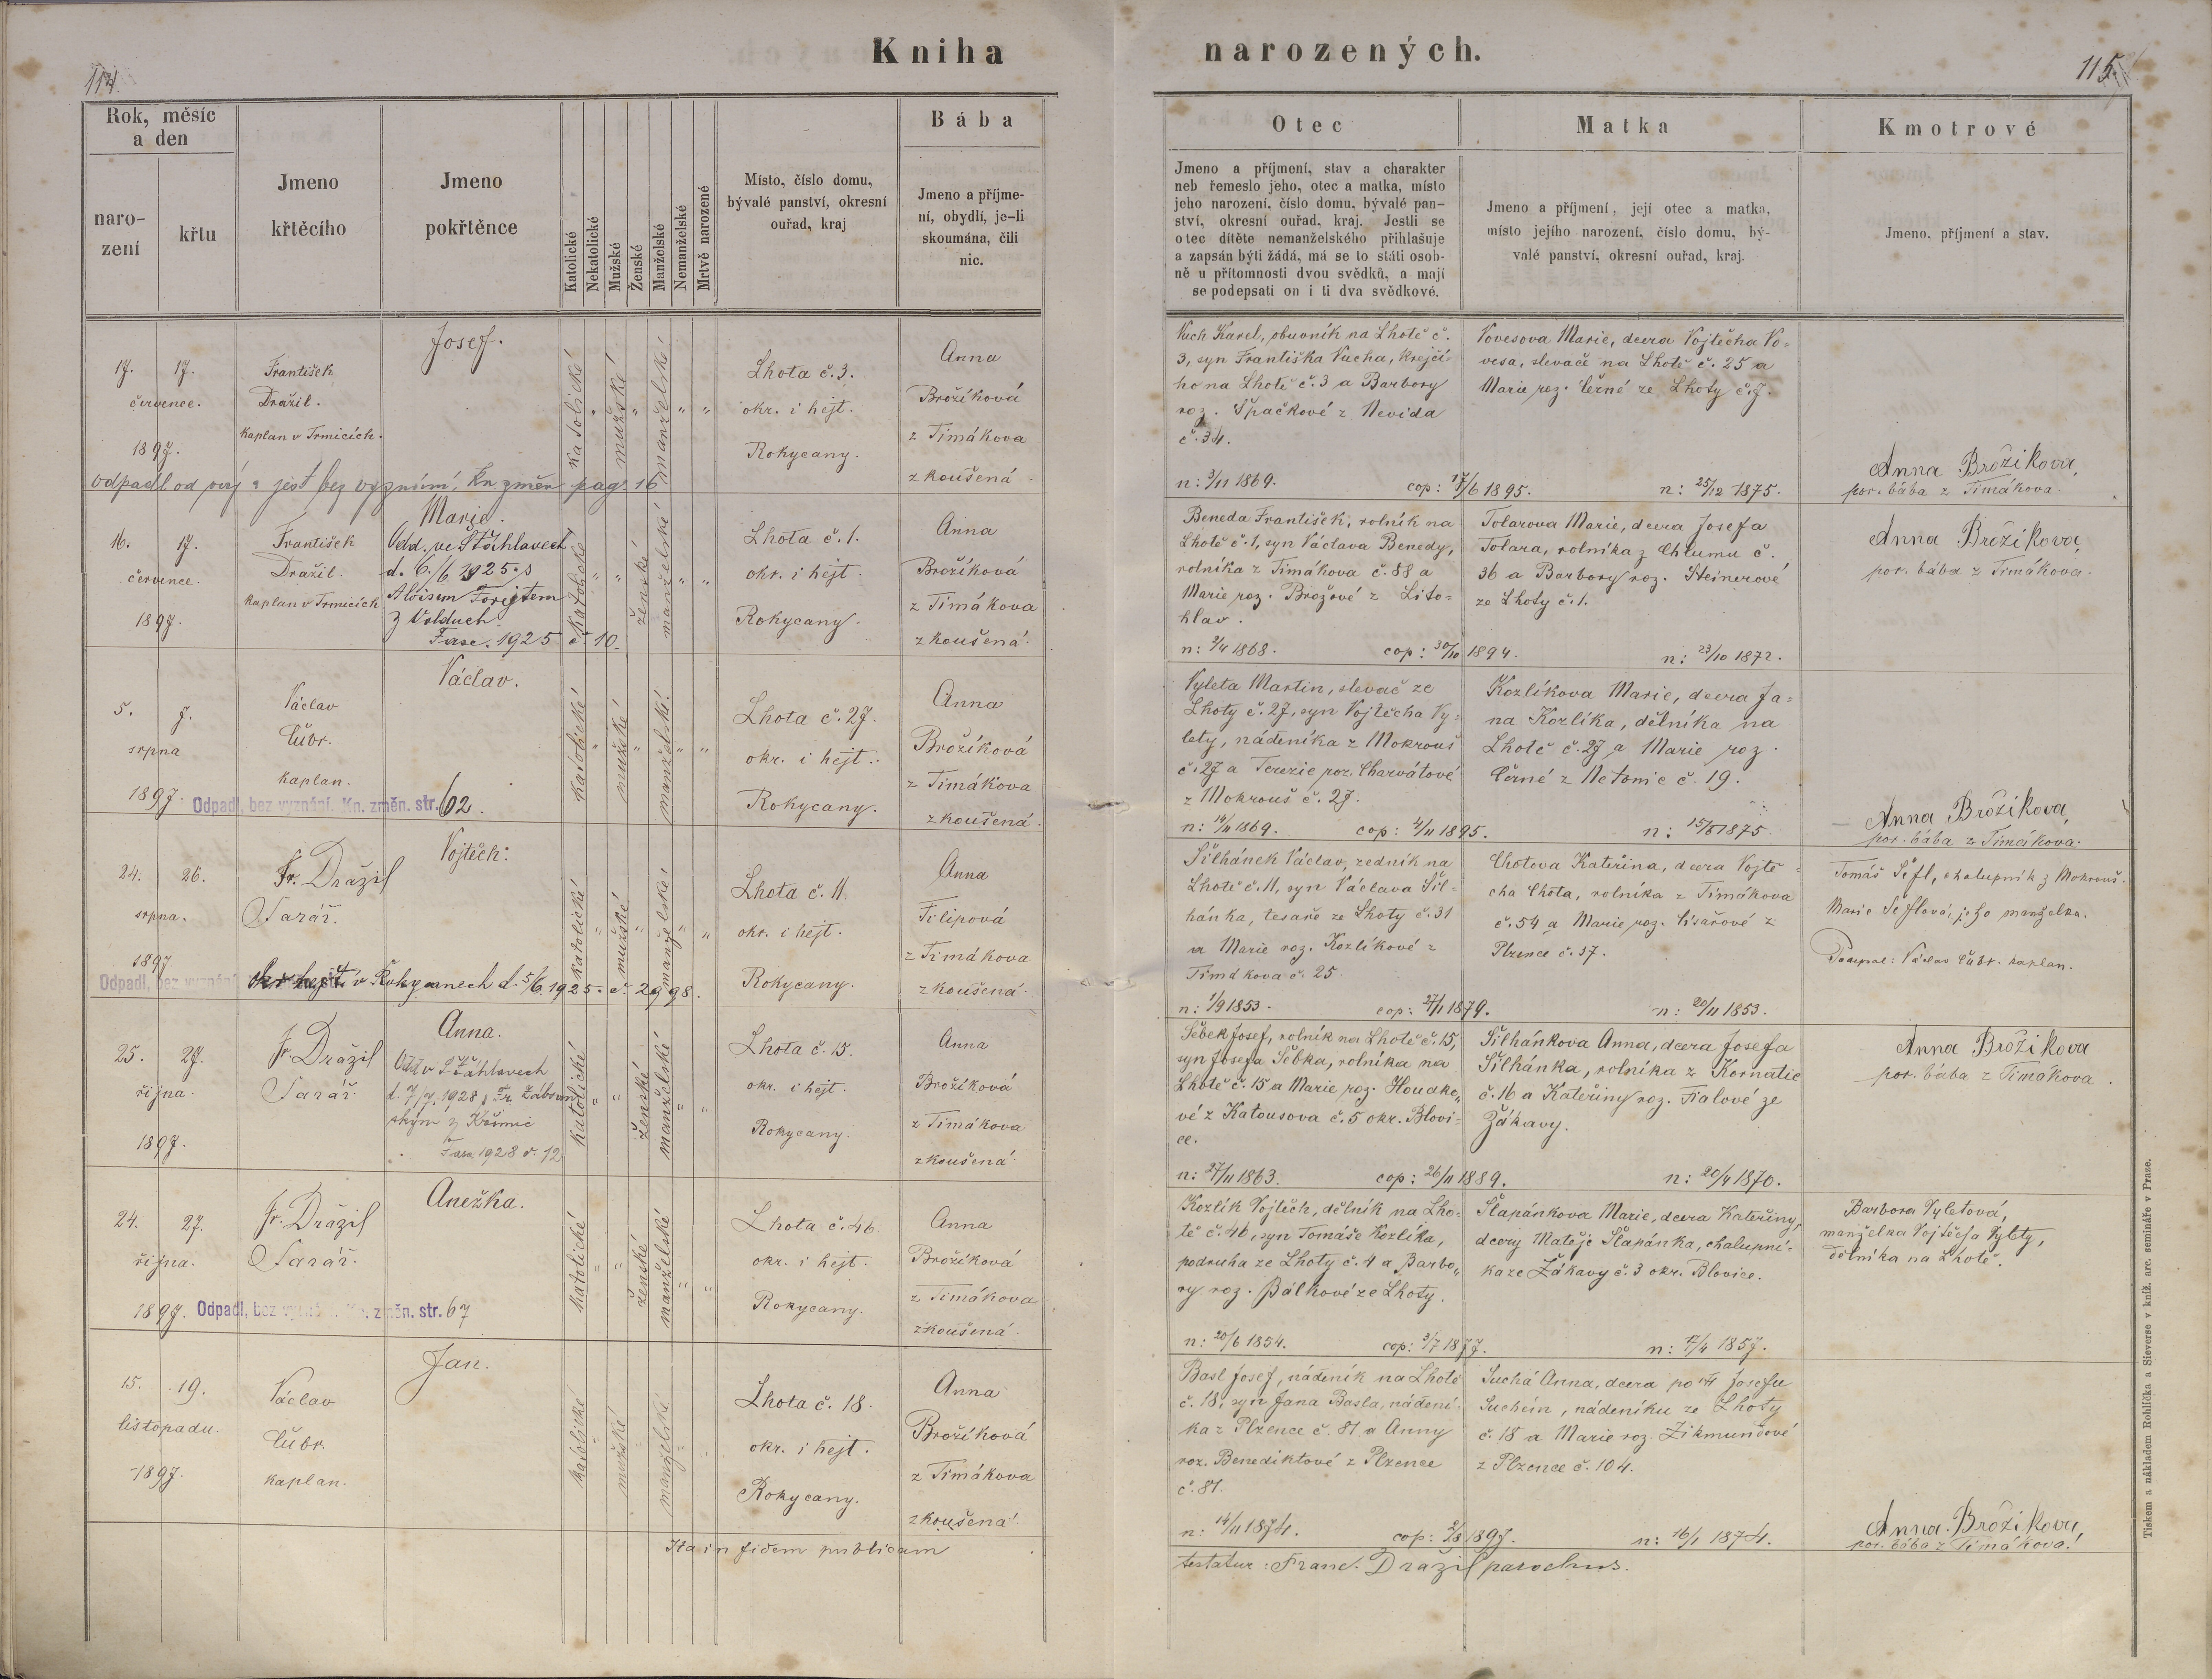 114.
Kniha
narozených.
115.
Rok, měsíc
a den
naro-
zení
křtu
Jmeno
křtěcího
Jmeno
pokřtěnce
Katolické
Nekatolické
Mužské
Ženské
Manželské
Nemanželské
Mrtvě narozené
Místo, číslo domu,
bývalé panství, okresní
ouřad, kraj
Bába
Jmeno a příjme-
ní, obydlí, je-li
skoumána, čili
nic.
Otec
Jmeno a příjmení, stav a charakter
neb řemeslo jeho, otec a matka, místo
jeho narození, číslo domu, bývalé pan-
ství, okresní ouřad, kraj. Jestli se
otec dítěte nemanželského přihlašuje
a zapsán býti žádá, má se to státi osob-
ně u přítomnosti dvou svědků, a mají
se podepsati on i ti dva svědkové.
Matka
Jmeno a příjmení, její otec a matka,
místo jejího narození, číslo domu, bý-
valé panství, okresní ouřad, kraj.
Kmotrové
Jmeno, příjmení a stav.
17. 17.
července.
1897.
František
Dražil.
Kaplan v Trmicích.
Josef.
katolické " mužské " manželské " "
Lhota č. 3.
okr. i hejt.
Rokycany.
Anna
Brožíková
z Timákova
zkoušená.
odpadl od círk a jest bez vyznání, kn. změn pag. 16
Vuch Karel, obuvník na Lhotě č.
3, syn Františka Vucha, krejčí-
ho na Lhotě č. 3 a Barbory
roz. Špačkové z Nevida
č. 34.
n: 3/11 1869. cop: 17/6 1895.
Vovesova Marie, dcera Vojtěcha Vo-
vesa, slevače na Lhotě č. 25 a
Marie roz. Černé ze Lhoty č. 7.
n: 25/12 1875.
Anna Brožíkova,
por. bába z Timákova.
16. 17.
července.
1897.
František
Dražil.
Kaplan v Trmicích
Marie.
Odd. ve Šťáhlavech
d. 6./6. 1925 s
Aloisem Forejtem
z Volduch
Fasc. 1925 č. 10.
katolické " " ženské manželské " "
Lhota č. 1.
okr. i hejt.
Rokycany.
Anna
Brožíková
z Timákova
zkoušená.
Beneda František, rolník na
Lhotě č. 1, syn Václava Benedy,
rolníka z Timákova č. 88 a
Marie roz. Brožové z Lito-
hlav.
n: 2/4 1868. cop: 30/10 1894.
Tolarova Marie, dcera Josefa
Tolara, rolníka z Chlumu č.
36 a Barbory roz. Steinerové
ze Lhoty č. 1.
n: 23/10 1872.
Anna Brožíkova,
por. bába z Timákova.
5. 7.
srpna
1897.
Václav
Čubr.
kaplan.
Václav.
Odpadl, bez vyznání. Kn. změn. str. 62.
katolické " mužské " manželské. " "
Lhota č. 27.
okr. i hejt.
Rokycany.
Anna
Brožíková
z Timákova
zkoušená.
Vyleta Martin, slevač ze
Lhoty č. 27, syn Vojtěcha Vy-
lety, nádeníka z Mokrouš
č. 27 a Terezie roz. Charvátové
z Mokrouš č. 27.
n: 14/11 1869. cop: 4/11 1895.
Kozlíkova Marie, dcera Ja-
na Kozlíka, dělníka na
Lhotě č. 27 a Marie roz.
Černé z Netonic č. 19.
n: 15/8 1875.
Anna Brožíkova,
por. bába z Timákova.
24. 26.
srpna.
1897
Fr. Dražil
Farář.
Vojtěch.
katolické " mužské " manželské " "
Lhota č. 11.
okr. i hejt.
Rokycany.
Anna
Filipová
z Timákova
zkoušená.
Odpadl, bez vyznání
okr. hejt. v Rokycanech d. 5/6. 1925. č. 2998.
Šilhánek Václav, zedník na
Lhotě č. 11, syn Václava Šil-
hánka, tesaře ze Lhoty č. 31
a Marie roz. Kozlíkové z
Timákova č. 25.
n: 1/9 1853. cop: 27/1 1879.
Chotova Kateřina, dcera Vojtě-
cha Chota, rolníka z Timákova
č. 54 a Marie roz. Císařové z
Plzence č. 37.
n: 20/11 1853.
Tomáš Šefl, chalupník z Mokrouš.
Marie Šeflová, jeho manželka.
Podepsal: Václav Čubr. kaplan.
25. 27.
října.
1897.
Fr. Dražil
Farář.
Anna.
Odd v Šťáhlavech
d. 7/7. 1928 s Fr. Zábran-
ským z Kšimic
Fasc 1928 č. 12
katolické " " ženské manželské " "
Lhota č. 15.
okr. i hejt.
Rokycany.
Anna
Brožíková
z Timákova
zkoušená.
Šebek Josef, rolník na Lhotě č. 15,
syn Josefa Šebka, rolníka na
Lhotě č. 15 a Marie roz. Houdko-
vé z Katousova č. 5 okr. Blovi-
ce.
n: 27/11 1863. cop: 26/11 1889.
Šilhánkova Anna, dcera Josefa
Šilhánka, rolníka z Kornatic
č. 16 a Kateřiny roz. Fialové ze
Žákavy.
n: 20/4 1870.
Anna Brožíkova
por. bába z Timákova.
24. 27.
října.
1897.
Fr. Dražil
Farář.
Anežka.
Odpadl, bez vyznání. Kn. změn. str. 67
katolické " " ženské manželské " "
Lhota č. 46
okr. i hejt.
Rokycany.
Anna
Brožíková
z Timákova
zkoušená.
Kozlík Vojtěch, dělník na Lho-
tě č. 46, syn Tomáše Kozlíka,
podruha ze Lhoty č. 4 a Barbo-
ry roz. Pálkové ze Lhoty.
n: 20/6 1854. cop: 3/7 1877.
Šlapánkova Marie, dcera Kateřiny,
dcery Matěje Šlapánka, chalupní-
ka ze Žákavy č. 3 okr. Blovice.
n: 17/4 1857.
Barbora Vyletová,
manželka Vojtěcha Vylety,
dělníka na Lhotě.
15. 19.
listopadu.
1897.
Václav
Čubr.
kaplan.
Jan.
katolické " mužské manželské "
Lhota č. 18.
okr. i hejt.
Rokycany.
Anna
Brožíková
z Timákova
zkoušená.
Basl Josef, nádeník na Lhotě
č. 18, syn Jana Basla, nádení-
ka z Plzence č. 81 a Anny
roz. Benediktové z Plzence
č. 81.
n: 14/11 1874. cop: 2/8 1897.
Suchá Anna, dcera po Josefu
Suchém, nádeníku ze Lhoty
č. 18 a Marie roz. Zikmundové
z Plzence č. 104.
n: 16/1 1874.
Anna Brožíkova,
por. bába z Timákova.
Ita in fidem publicam
testatur: Franc. Dražil parochus.
Tiskem a nákladem Rohlíčka a Sieverse v kníž. arc. semináře v Praze.